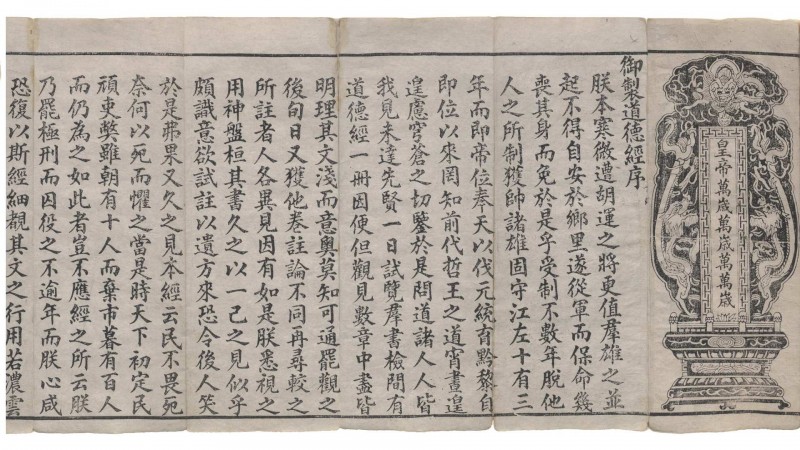 皇帝萬歲萬歲萬萬歲
御製道德經序
朕本寒微遭胡運之將更值羣雄之並
起不得自安於鄉里遂從軍而保命幾
喪其身而免於是乎受制不數年脫他
人之所制獲帥諸雄固守江左十有三
年而即帝位奉天以伐元統育黔黎自
即位以來罔知前代哲王之道宵晝遑
遑慮穹蒼之切鑒於是問道諸人人皆
我見未達先賢一日試覽羣書檢間有
道德經一冊因便但觀見數章中盡皆
明理其文淺而意奧莫知可通罷觀之
後旬日又獲他卷註論不同再尋較之
所註者人各異見因有如是朕悉視之
用神盤桓其書久之以一己之見似乎
頗識意欲試註以遺方來恐令後人笑
於是弗果又久之見本經云民不畏死
奈何以死而懼之當是時天下初定民
頑吏弊雖朝有十人而棄市暮有百人
而仍為之如此者豈不應經之所云朕
乃罷極刑而囚役之不逾年而朕心咸
恐復以斯經細覩其文之行用若濃雲